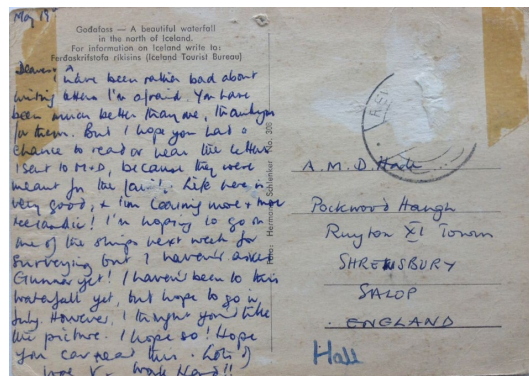 May 19
Goðafoss — A beautiful waterfall
in the north of Iceland.
For information on Iceland write to:
Ferðaskrifstofa ríkisins (Iceland Tourist Bureau)
I have been rather bad about
writing letters I'm afraid. You have
been much better than me, thankyou
for them. But I hope you had a
chance to read or hear the letters
I sent to M+D, because they were
meant for the family. Life here is
very good, + I'm learning more + more
Icelandic! I'm hoping to go on
one of the ships next week for
surveying but I haven't asked
Gunnar yet! I haven't been to this
waterfall yet, but hope to go in
July. However, I thought you'd like
the picture. I hope so! Hope
you can read this. Lots of
love Work Hard!!
Foto: Hermann Schlenker No. 308
A.M.D. Hall
Packwood Haugh
Ruyton XI Towns
SHREWSBURY
SALOP
ENGLAND
Hall